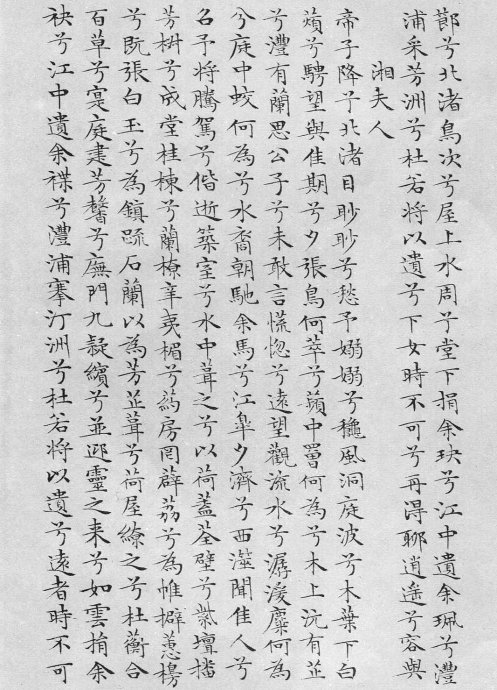 節兮北渚鳥次兮屋上水周兮堂下捐余玦兮江中遺余珮兮澧
浦采芳洲兮杜若将以遺兮下女時不可兮再得聊逍遥兮容與
湘夫人
帝子降兮北渚目眇眇兮愁予嫋嫋兮穐風洞庭波兮木葉下白
薠兮騁望與佳期兮夕張鳥何萃兮蘋中罾何為兮木上沅有芷
兮澧有蘭思公子兮未敢言慌惚兮遠望觀流水兮潺湲麋何為
兮庭中蛟何為兮水裔朝馳余馬兮江皋夕濟兮西澨聞佳人兮
召予将騰駕兮偕逝築室兮水中葺之兮以荷蓋荃壁兮紫壇播
芳椒兮成堂桂棟兮蘭橑辛夷楣兮葯房罔薜荔兮為帷擗蕙櫋
兮既張白玉兮為鎮疏石蘭以為芳芷葺兮荷屋繚之兮杜蘅合
百草兮實庭建芳馨兮廡門九疑繽兮並迎靈之来兮如雲捐余
袂兮江中遺余褋兮澧浦搴汀洲兮杜若将以遺兮遠者時不可